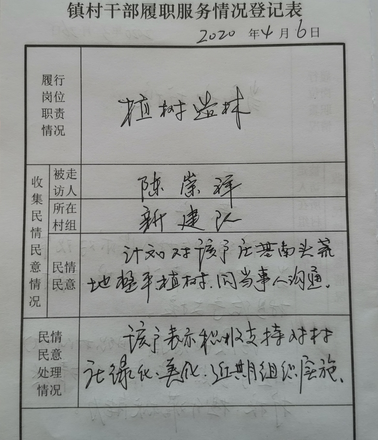 镇村干部履职服务情况登记表
2020 年4月6日
履行
岗位
职责
情况
植树造林
收集民情民意情况
被走
访人
陈崇祥
所在
村组
新建队
民情
民意
计划对该户庄基南头荒
地整平植树,同当事人沟通。
民情
民意
处理
情况
该户表示积极支持对村
庄绿化、美化、近期组织实施。